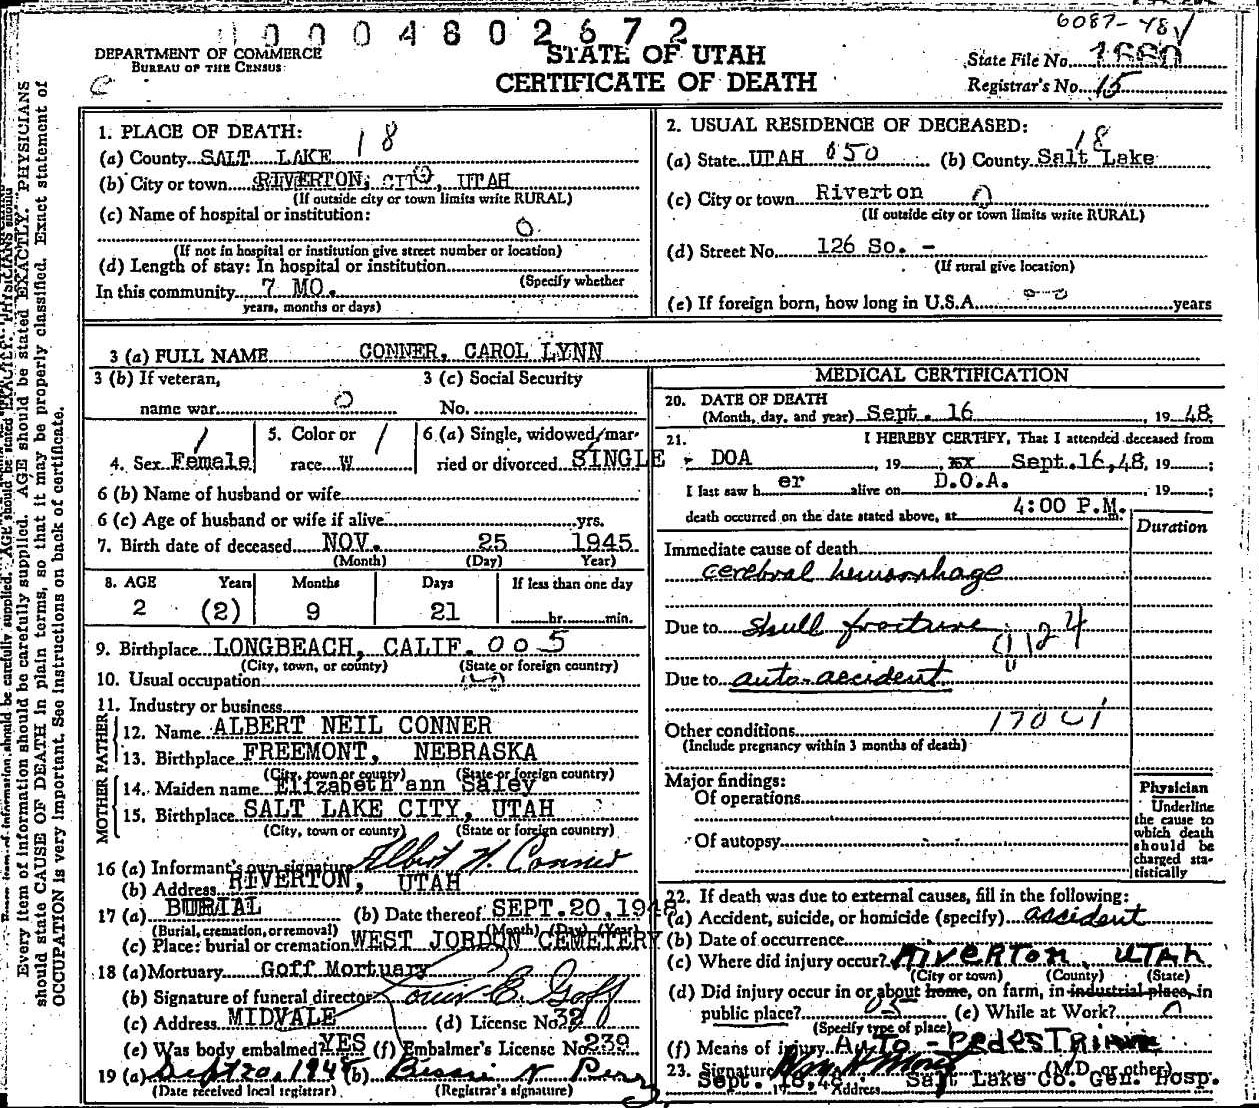 0004802672
6087-48
DEPARTMENT OF COMMERCE
BUREAU OF THE CENSUS
STATE OF UTAH
CERTIFICATE OF DEATH
State File No. 1660
Registrar's No. 15
Every item of information should be carefully supplied. AGE should be stated EXACTLY. PHYSICIANS
should state CAUSE OF DEATH in plain terms, so that it may be properly classified. Exact statement of
OCCUPATION is very important. See instructions on back of certificate.
1. PLACE OF DEATH: 18
(a) County SALT LAKE
(b) City or town RIVERTON, CITY, UTAH
(If outside city or town limits write RURAL)
(c) Name of hospital or institution:
0
(If not in hospital or institution give street number or location)
(d) Length of stay: In hospital or institution
(Specify whether
In this community 7 MO.
years, months or days)
2. USUAL RESIDENCE OF DECEASED:
18
(a) State UTAH 050 (b) County Salt Lake
(c) City or town Riverton 0
(If outside city or town limits write RURAL)
(d) Street No. 126 So. -
(If rural give location)
(e) If foreign born, how long in U.S.A. years
3 (a) FULL NAME CONNER, CAROL LYNN
3 (b) If veteran, 3 (c) Social Security
name war 0 No.
4. Sex Female 1
5. Color or race W 1
6 (a) Single, widowed, married or divorced SINGLE
6 (b) Name of husband or wife
6 (c) Age of husband or wife if alive yrs.
7. Birth date of deceased NOV. 25 1945
(Month) (Day) Year)
8. AGE Years Months Days If less than one day
2 (2) 9 21 hr. min.
9. Birthplace LONGBEACH, CALIF. 005
(City, town, or county) (State or foreign country)
10. Usual occupation
11. Industry or business
FATHER
12. Name ALBERT NEIL CONNER
13. Birthplace FREEMONT, NEBRASKA
(City, town or county) (State or foreign country)
MOTHER
14. Maiden name Elizabeth ann Saley
15. Birthplace SALT LAKE CITY, UTAH
(City, town or county) (State or foreign country)
16 (a) Informant's own signature Albert N. Conner
(b) Address RIVERTON, UTAH
17 (a) BURIAL (b) Date thereof SEPT. 20, 1948
(Burial, cremation, or removal) (Month) (Day) (Year)
(c) Place: burial or cremation WEST JORDON CEMETERY
18 (a) Mortuary Goff Mortuary
(b) Signature of funeral director Louis E. Goff
(c) Address MIDVALE (d) License No. 32
(e) Was body embalmed? YES (f) Embalmer's License No. 239
19 (a) Sept 20, 1948 (b) Bessie N Perry
(Date received local registrar) (Registrar's signature)
MEDICAL CERTIFICATION
20. DATE OF DEATH
(Month, day, and year) Sept. 16, 1948
21. I HEREBY CERTIFY, That I attended deceased from
- DOA, 19 , xx Sept.16,48, 19 ;
I last saw her alive on D.O.A., 19 ;
death occurred on the date stated above, at 4:00 P.M. m.
Duration
Immediate cause of death
cerebral hemorrhage
Due to skull fracture
Due to auto-accident
Other conditions
(Include pregnancy within 3 months of death)
Major findings:
Of operations
Of autopsy
Physician
Underline
the cause to
which death
should be
charged sta-
tistically
22. If death was due to external causes, fill in the following:
(a) Accident, suicide, or homicide (specify) accident
(b) Date of occurrence
(c) Where did injury occur? Riverton, UTAH
(City or town) (County) (State)
(d) Did injury occur in or about home, on farm, in industrial place, in
public place? 05 (e) While at Work? 0
(Specify type of place)
(f) Means of injury AUTO-PEDESTRIAN
23. Signature (M.D. or other)
Sept. 18,48 Address Salt Lake Co. Gen. Hosp.